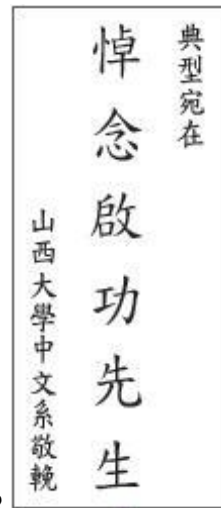 典型宛在
悼念啟功先生
山西大學中文系敬輓